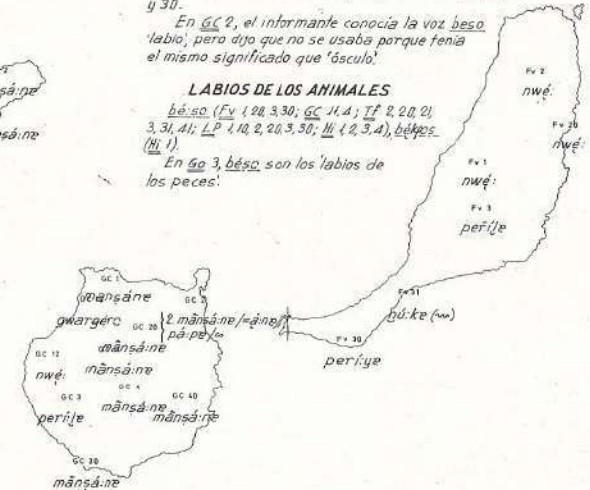 y 30.
En GC 2, el informante conocía la voz beso
'labio', pero dijo que no se usaba porque tenía
el mismo significado que 'ósculo'.
LABIOS DE LOS ANIMALES
bé:so (Fv 1, 20, 3, 30; GC 11, 4; Tf 2, 20, 21,
3, 31, 41; LP 1, 10, 2, 20, 3, 30; Hi 1, 2, 3, 4),
(Hi 1).
En Go 3, béso son los 'labios de
los peces'.
sá:ne
sá:ne
Fv 2
nwę́:
Fv 20
nwę́:
Fv 1
nwę́:
Fv 3
períļe
Fv 31
nú:ke
Fv 30
perí:ye
GC 1
mansáne
GC 2
gwargéro
GC 20
2 mãnsá:ne/=á:ne/
pá:pe/∞
mãnsá:ne
GC 12
nwę́:
mãnsá:ne
GC 3
períļe
GC 4
mãnsá:ne
GC 40
mãnsá:ne
GC 30
mãnsá:ne